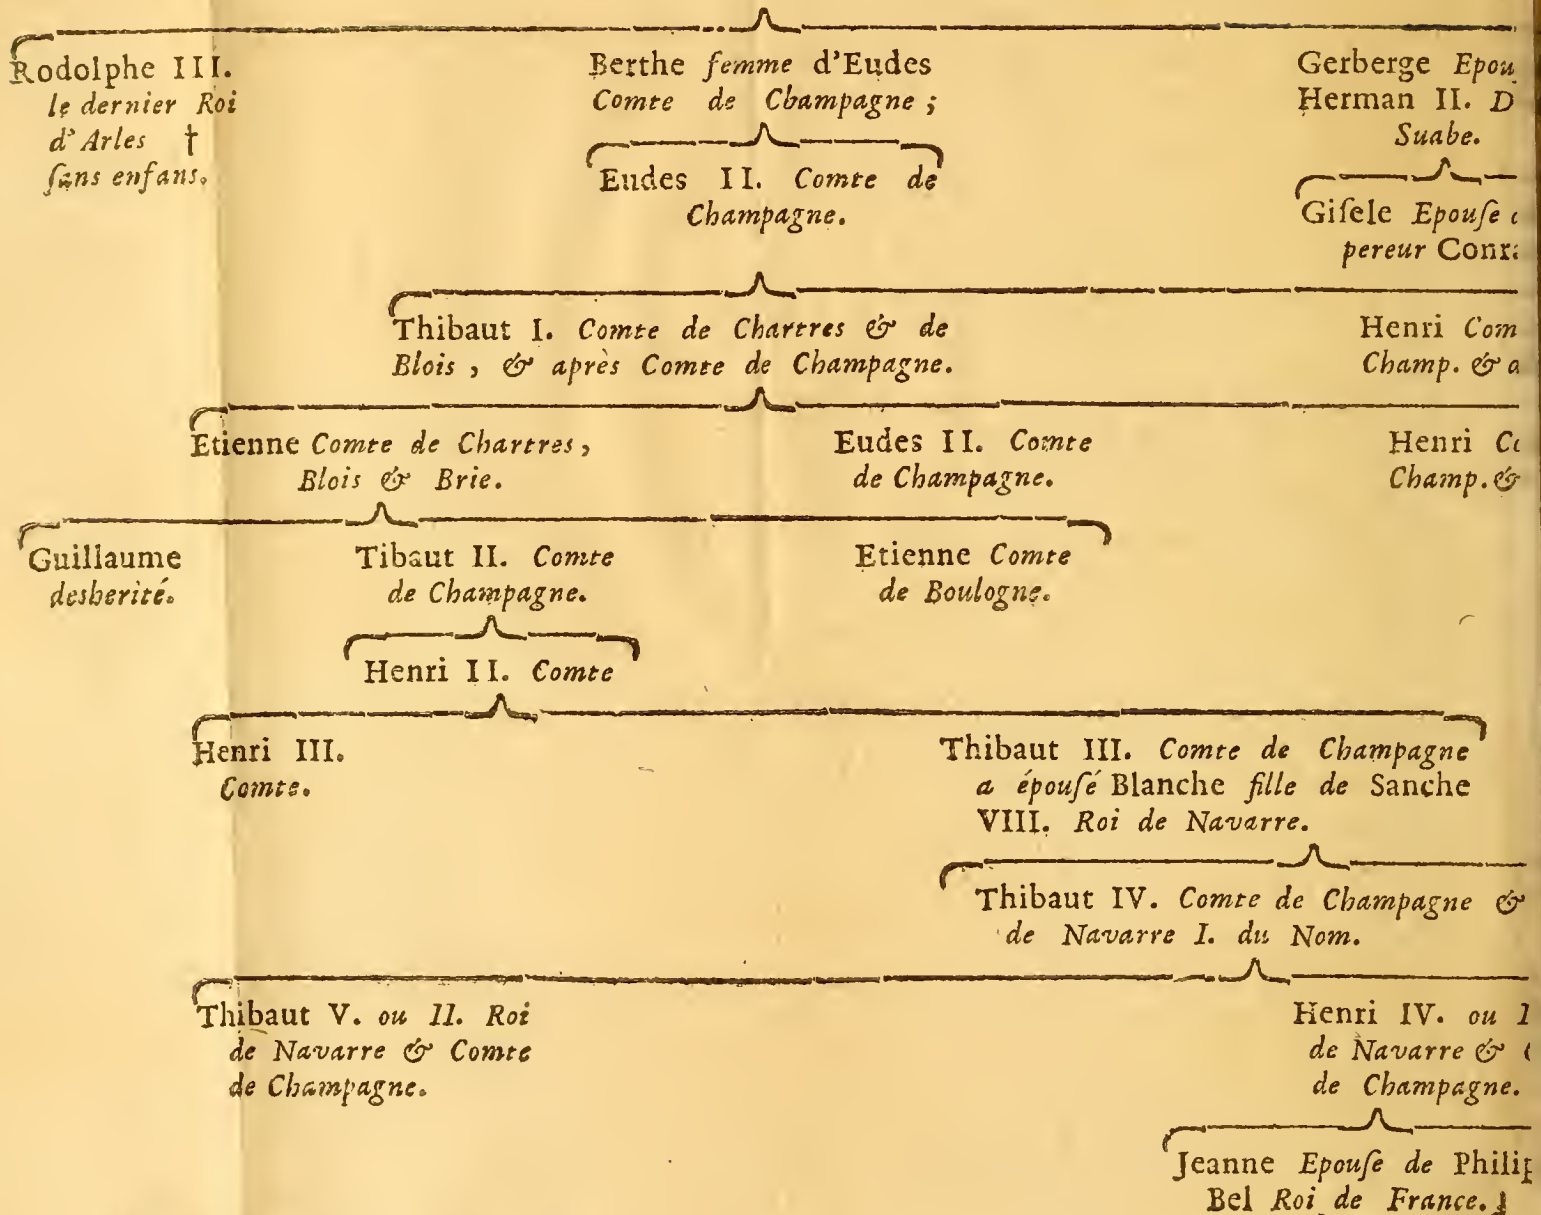 Rodolphe III.
le dernier Roi
d'Arles †
ſans enfans.
Berthe femme d'Eudes
Comte de Champagne ;
Eudes II. Comte de
Champagne.
Gerberge Epou
Herman II. D
Suabe.
Giſele Epouſe
pereur Conr
Thibaut I. Comte de Chartres & de
Blois , & après Comte de Champagne.
Henri Com
Champ. & a
Etienne Comte de Chartres ,
Blois & Brie.
Eudes II. Comte
de Champagne.
Henri Co
Champ. &
Guillaume
desherité.
Tibaut II. Comte
de Champagne.
Etienne Comte
de Boulogne.
Henri II. Comte
Henri III.
Comte.
Thibaut III. Comte de Champagne
a épouſé Blanche fille de Sanche
VIII. Roi de Navarre.
Thibaut IV. Comte de Champagne &
de Navarre I. du Nom.
Thibaut V. ou II. Roi
de Navarre & Comte
de Champagne.
Henri IV. ou
de Navarre &
de Champagne.
Jeanne Epouſe de Philip
Bel Roi de France.